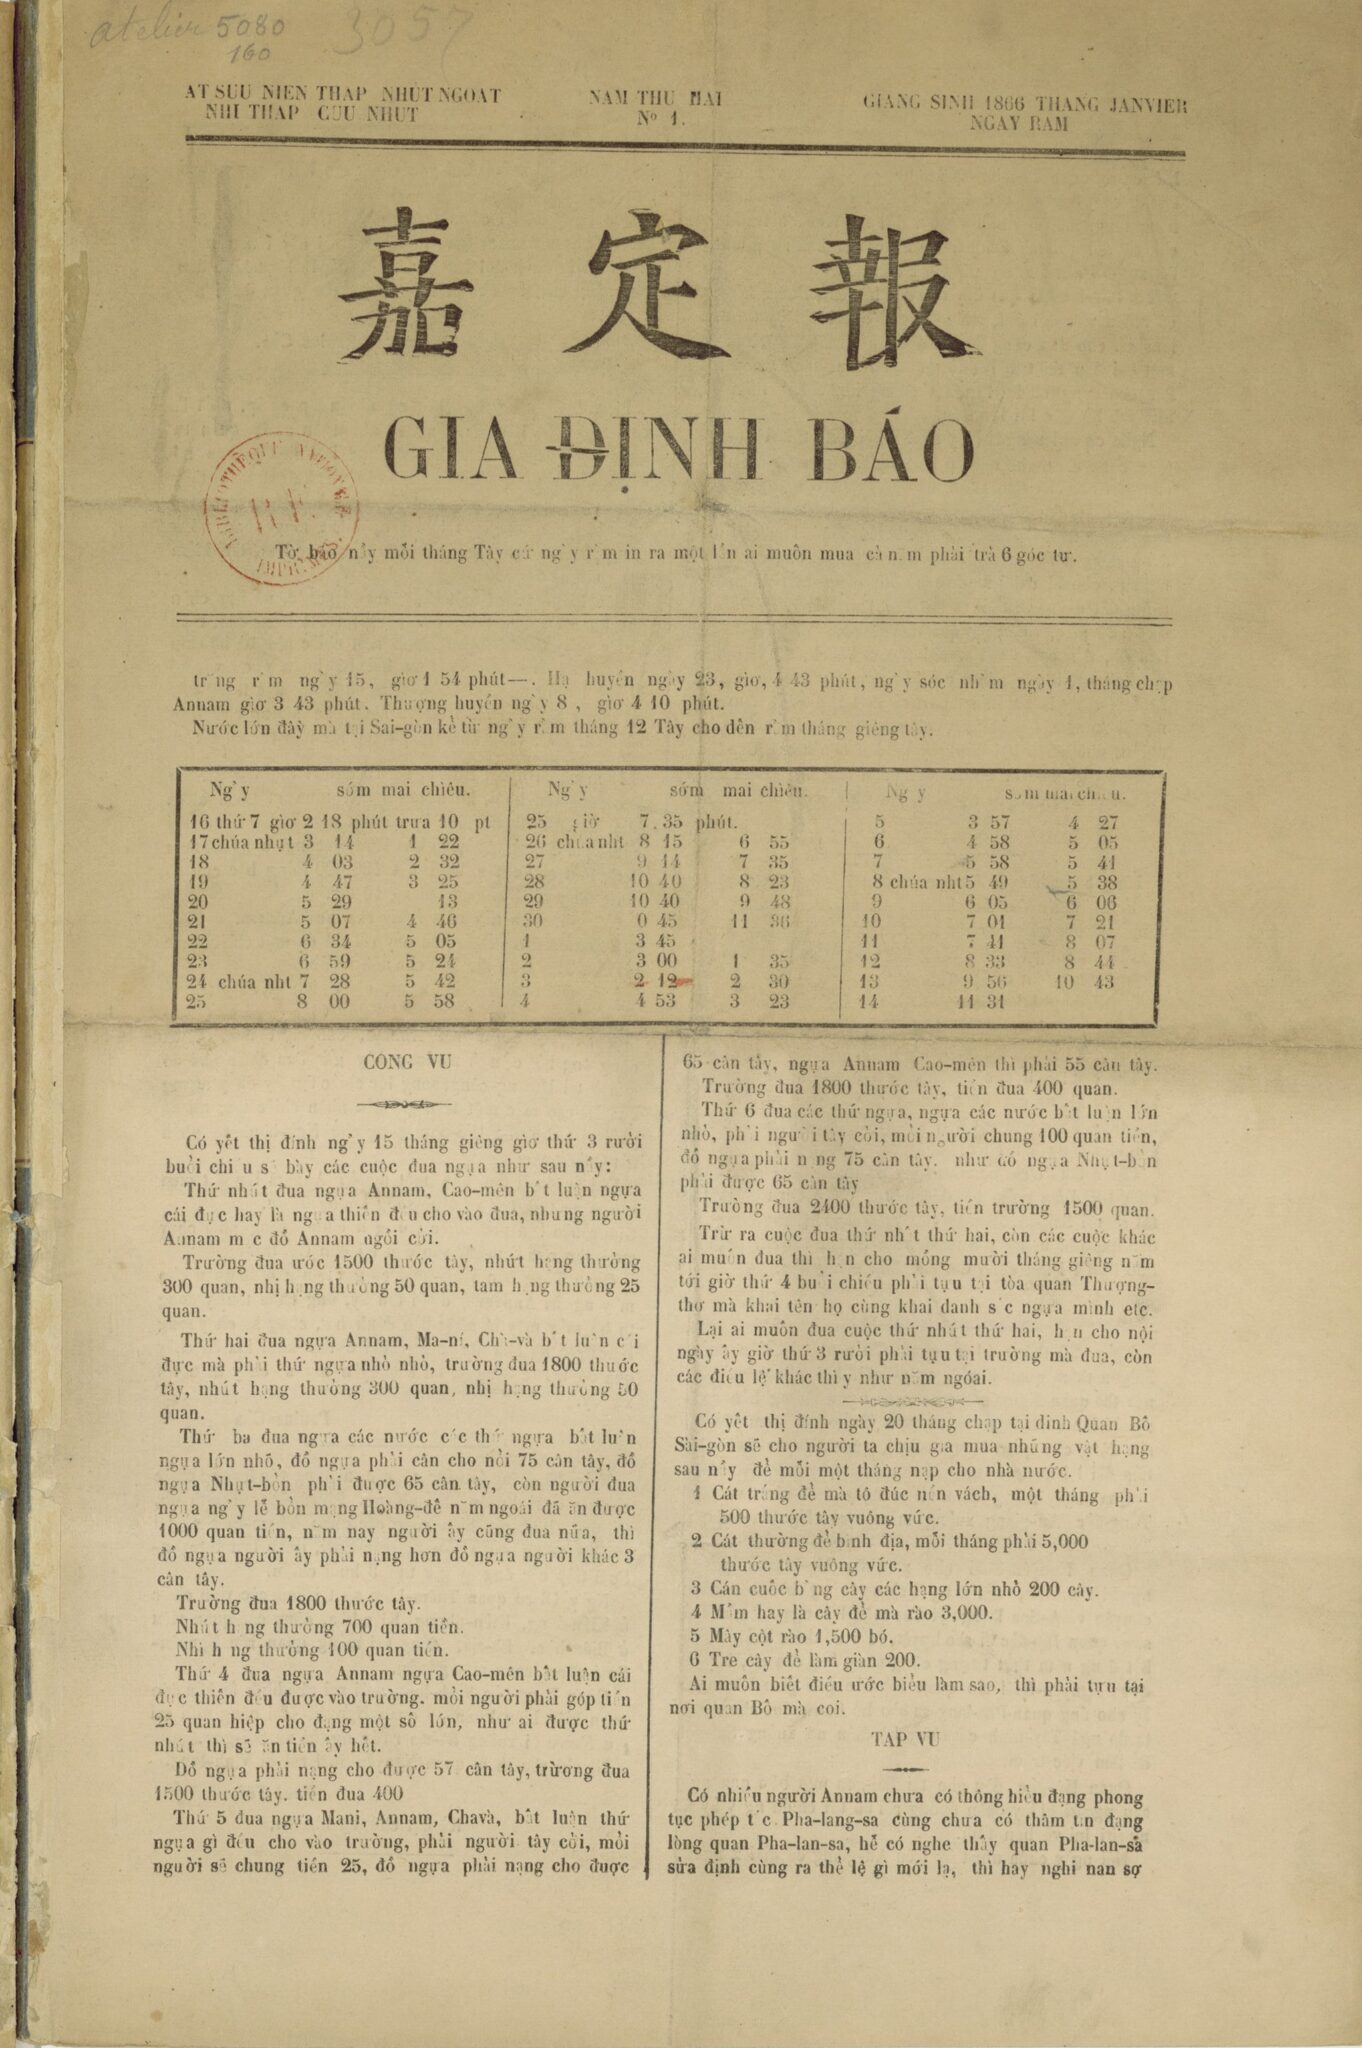 atelier 5080
160
3057
AT SUU NIEN THAP NHUT NGOAT
NHI THAP CUU NHUT
NAM THU HAI
Nº 1.
GIANG SINH 1866 THANG JANVIER
NGAY RAM
嘉定報
GIA ĐỊNH BÁO
Tờ báo nầy mỗi tháng Tây cứ ngày rằm in ra một lần ai muốn mua cả năm phải trả 6 góc tư.
trăng rằm ngày 15, giờ 1 54 phút—. Hạ huyền ngày 23, giờ, 4 43 phút, ngày sóc nhằm ngày 1, tháng chạp
Annam giờ 3 43 phút. Thượng huyền ngày 8, giờ 4 10 phút.
Nước lớn đầy mà tại Sai-gòn kể từ ngày rằm tháng 12 Tây cho đến rằm tháng giêng tây.
Ngày sớm mai chiều.
16 thứ 7 giờ 2 18 phút trưa 10 pt
17 chúa nhựt 3 14 1 22
18 4 03 2 32
19 4 47 3 25
20 5 29 13
21 5 07 4 46
22 6 34 5 05
23 6 59 5 24
24 chúa nht 7 28 5 42
25 8 00 5 58
Ngày sớm mai chiều.
25 giờ 7.35 phút.
26 chúa nht 8 15 6 55
27 9 14 7 35
28 10 40 8 23
29 10 40 9 48
30 0 45 11 36
1 3 45
2 3 00 1 35
3 2 12 2 30
4 4 53 3 23
Ngày sớm mai chiều.
5 3 57 4 27
6 4 58 5 05
7 5 58 5 41
8 chúa nht 5 49 5 38
9 6 05 6 06
10 7 01 7 21
11 7 41 8 07
12 8 33 8 44
13 9 56 10 43
14 11 31
CONG VU
Có yết thị đính ngày 15 tháng giêng giờ thứ 3 rưởi
buổi chiều sẽ bày các cuộc đua ngựa như sau nầy:
Thứ nhất đua ngựa Annam, Cao-mên bất luận ngựa
cái đực hay là ngựa thiến đều cho vào đua, nhưng người
Annam mặc đồ Annam ngồi cỡi.
Trường đua ước 1500 thước tây, nhứt hạng thưởng
300 quan, nhị hạng thưởng 50 quan, tam hạng thưởng 25
quan.
Thứ hai đua ngựa Annam, Ma-ní, Chà-và bất luận cái
đực mà phải thứ ngựa nhỏ nhỏ, trường đua 1800 thước
tây, nhứt hạng thưởng 300 quan, nhị hạng thưởng 50
quan.
Thứ ba đua ngựa các nước các thứ ngựa bất luận
ngựa lớn nhỏ, đồ ngựa phải cân cho nổi 75 cân tây, đồ
ngựa Nhựt-bổn phải được 65 cân tây, còn người đua
ngựa ngày lễ bổn mạng Hoàng-đế năm ngoái đã ăn được
1000 quan tiền, năm nay người ấy cũng đua nữa, thì
đồ ngựa người ấy phải nạng hơn đồ ngựa người khác 3
cân tây.
Trường đua 1800 thước tây.
Nhứt hạng thưởng 700 quan tiền.
Nhì hạng thưởng 100 quan tiền.
Thứ 4 đua ngựa Annam ngựa Cao-mên bất luận cái
đực thiến đều được vào trường. mỗi người phải góp tiền
25 quan hiệp cho đạng một số lớn, như ai được thứ
nhứt thì sẽ ăn tiền ấy hết.
Đồ ngựa phải nạng cho được 57 cân tây, trường đua
1500 thước tây. tiền đua 400
Thứ 5 đua ngựa Mani, Annam, Chavà, bất luận thứ
ngựa gì đều cho vào trường, phải người tây cỡi, mỗi
người sẽ chung tiền 25, đồ ngựa phải nạng cho được
65 cân tây, ngựa Annam Cao-mên thì phải 55 cân tây.
Trường đua 1800 thước tây, tiền đua 400 quan.
Thứ 6 đua các thứ ngựa, ngựa các nước bất luận lớn
nhỏ, phải người tây cỡi, mỗi người chung 100 quan tiền,
đồ ngựa phải nạng 75 cân tây. như đồ ngựa Nhựt-bổn
phải được 65 cân tây
Trường đua 2400 thước tây, tiền trường 1500 quan.
Trừ ra cuộc đua thứ nhứt thứ hai, còn các cuộc khác
ai muốn đua thì hạn cho mồng mười tháng giêng năm
tới giờ thứ 4 buổi chiều phải tựu tại tòa quan Thượng-
thơ mà khai tên họ cùng khai danh sắc ngựa mình etc.
Lại ai muốn đua cuộc thứ nhứt thứ hai, hạn cho nội
ngày ấy giờ thứ 3 rưởi phải tựu tại trường mà đua, còn
các điều lệ khác thì y như năm ngoái.
Có yết thị đính ngày 20 tháng chạp tại dinh Quan Bố
Sài-gòn sẽ cho người ta chịu giá mua những vật hạng
sau nầy để mỗi một tháng nạp cho nhà nước.
1 Cát trắng để mà tô đúc nền vách, một tháng phải
500 thước tây vuông vức.
2 Cát thường để bình địa, mỗi tháng phải 5,000
thước tây vuông vức.
3 Cán cuốc bằng cây các hạng lớn nhỏ 200 cây.
4 Mầm hay là cây để mà rào 3,000.
5 Mây cột rào 1,500 bó.
6 Tre cây để làm giàn 200.
Ai muốn biết điều ước biểu làm sao, thì phải tựu tại
nơi quan Bố mà coi.
TAP VU
Có nhiều người Annam chưa có thông hiểu đạng phong
tục phép tắc Pha-lang-sa cùng chưa có thâm tín đạng
lòng quan Pha-lan-sa, hễ có nghe thấy quan Pha-lan-sa
sửa định cùng ra thể lệ gì mới lạ, thì hay nghi nan sợ